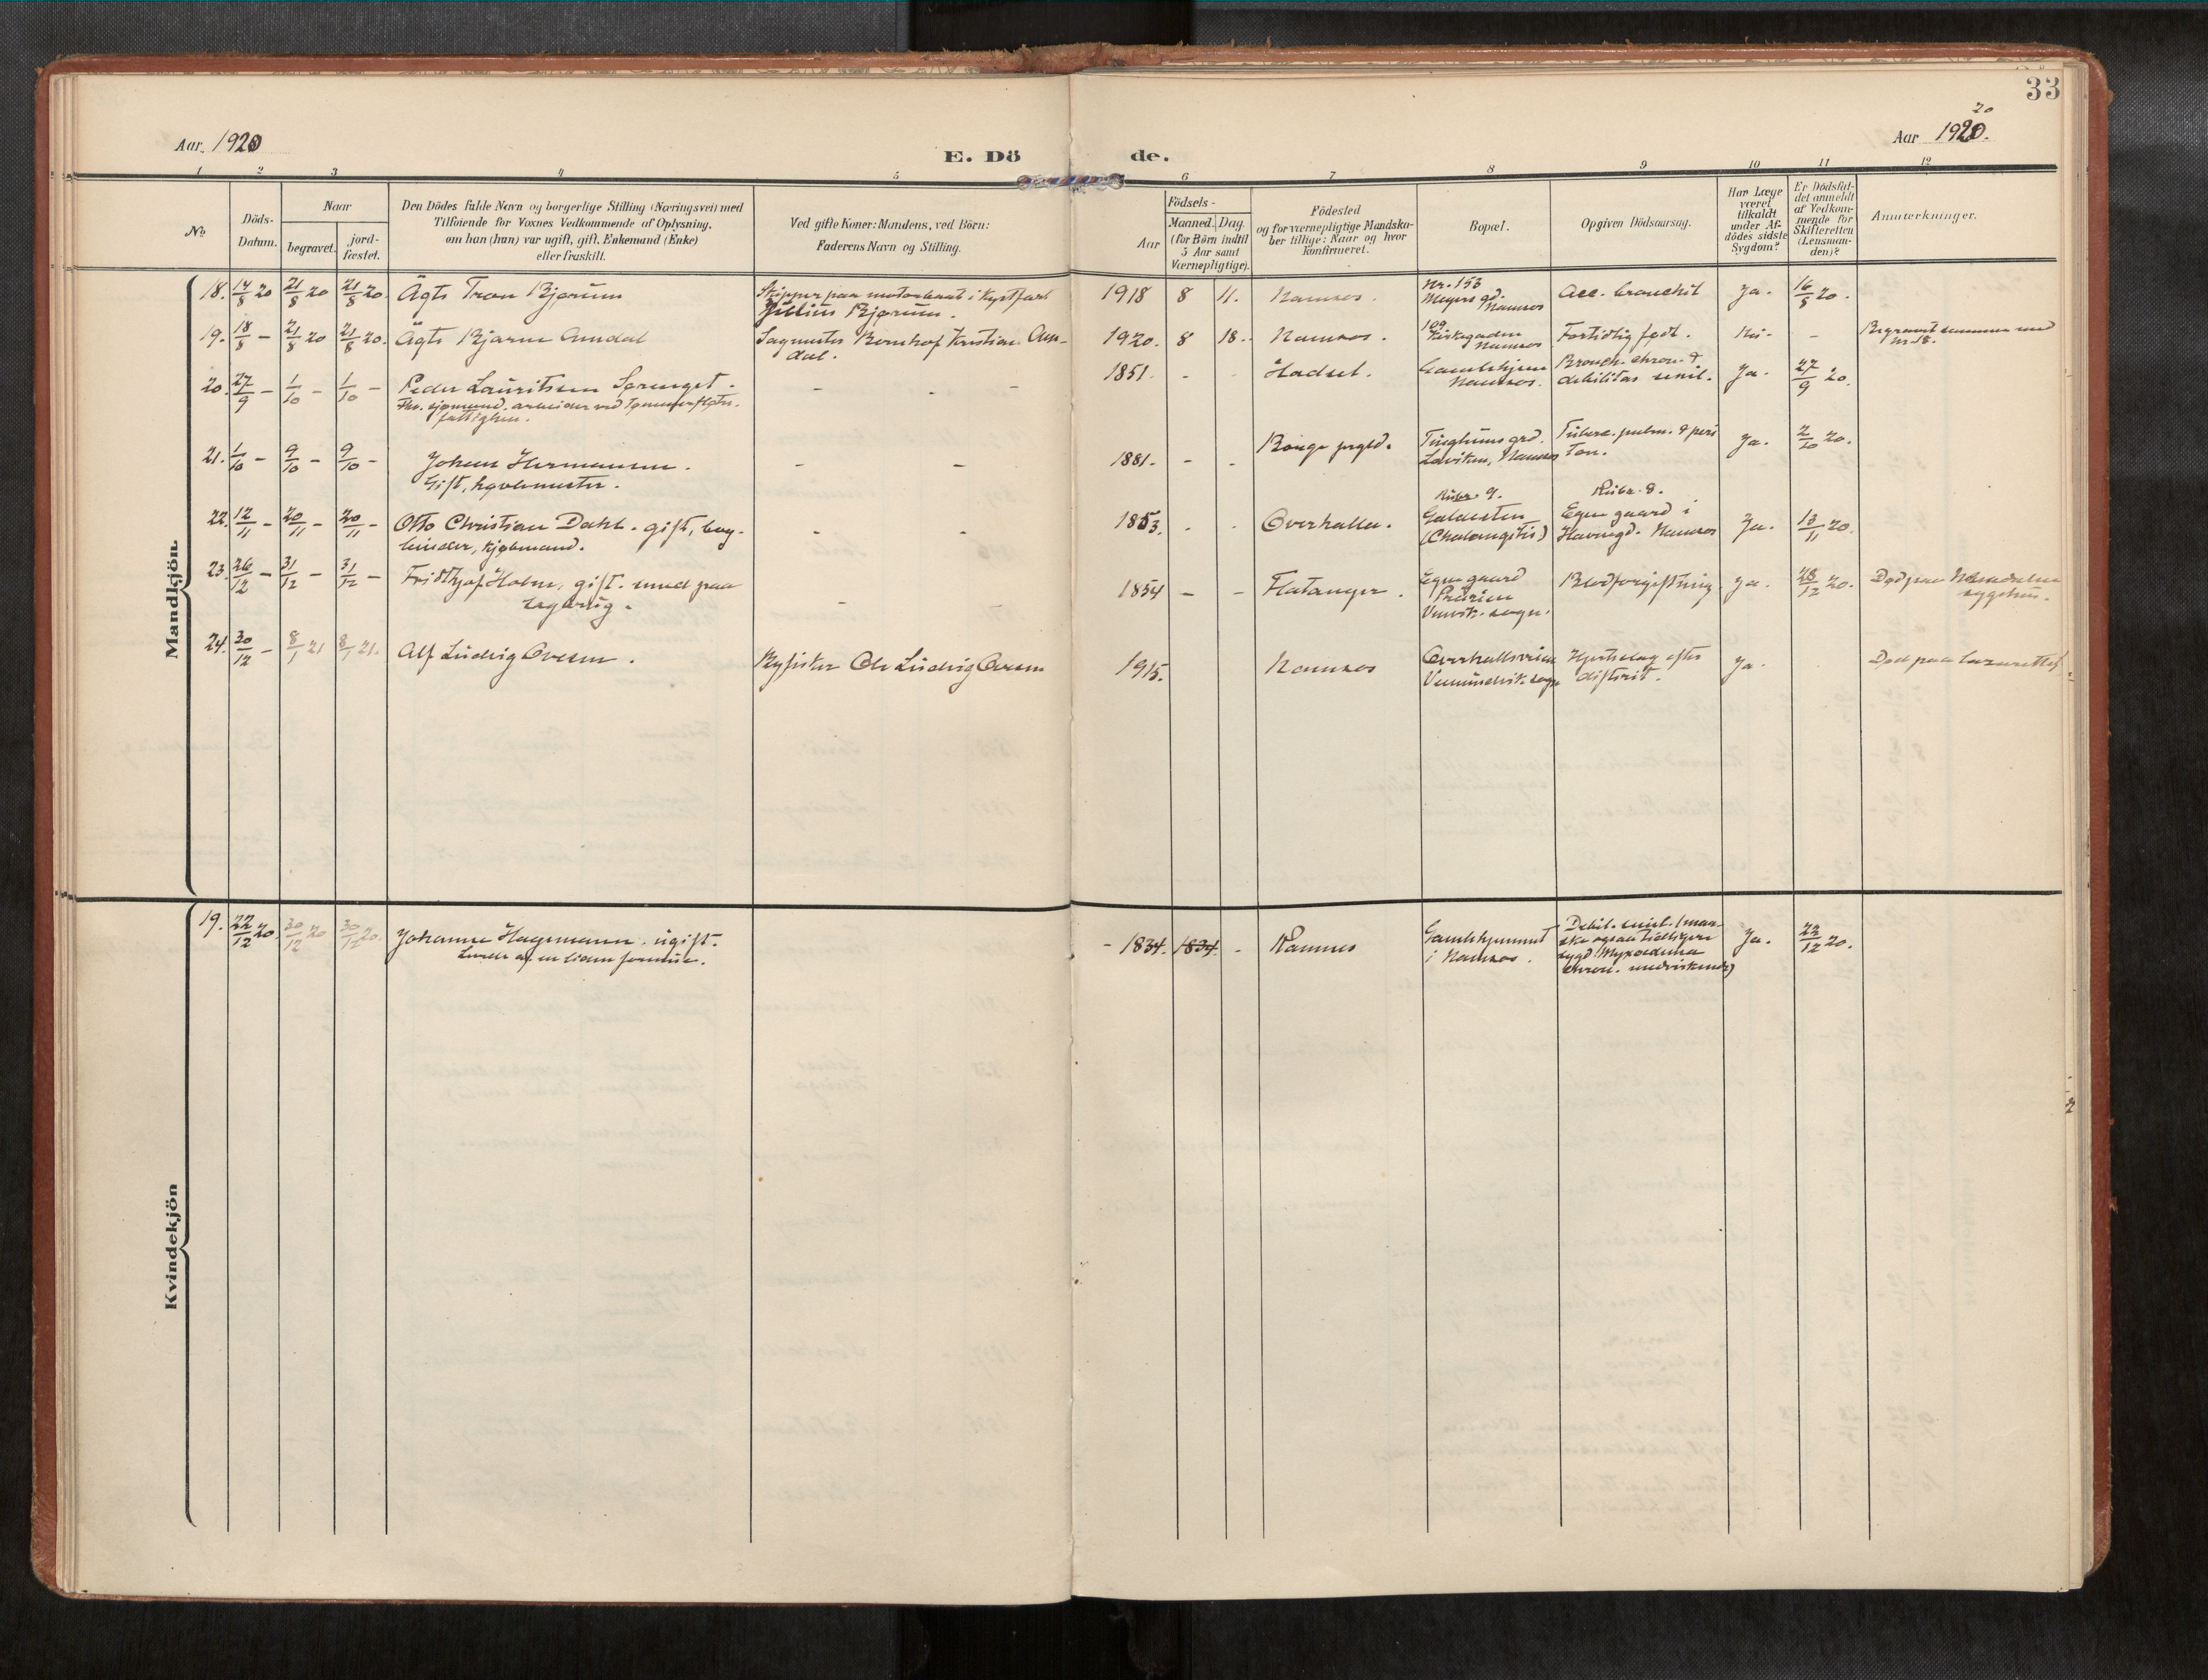 33
20
Aar 1920
Aar 1920.
E. Dö
de.
1 2 3 4 5 6 7 8 9 10 11 12
No
Döds-
Datum.
Naar
begravet.
jord-
fæstet.
Den Dödes fulde Navn og borgerlige Stilling (Næringsvei) med
Tilföiende for Voxnes Vedkommende af Oplysning,
om han (hun) var ugift, gift, Enkemand (Enke)
eller fraskilt.
Ved gifte Koner: Mandens, ved Börn:
Faderens Navn og Stilling.
Födsels-
Aar
Maaned.
Dag.
(for Börn indtil
5 Aar samt
Værnepligtige).
Födested
og for værnepligtige Mandska-
ber tillige: Naar og hvor
konfirmeret.
Bopæl.
Opgiven Dödsaarsag.
Har Læge
været
tilkaldt
under Af-
dödes sidste
Sygdom?
Er Dödsfal-
det anmeldt
af Vedkom-
mende for
Skifteretten
(Lensman-
den)?
Anmærkninger.
Mandkjön
18. 14/8 20 21/8 20 21/8 20. Ägte Tron Bjørum
Skipper paa motorbaat i kystfart
Julius Bjørum.
1918 8 11. Namsos.
Nr. 153
Meyers gd.
Namsos
Acc. bronchit Ja. 16/8 20.
19. 18/8 - 21/8 20 21/8 20. Ägte Bjarne Amdal
Sagmester Bernhof Kristian Am-
dal.
1920. 8 18. Namsos.
109
Kirkegaden
Namsos
Fortidlig født. Nei - Begravet sammen med
nr. 18.
20. 27/9 - 1/10 - 1/10 - Peder Lauritsen Sprenget.
Fhv. sjømand, arbeider ved Tømmerfløtn.
fattighm.
- - -
1851. - - Hadsel. Gamlehjem
Namsos.
Bronch. chron. &
debilitas senil. Ja. 27/9 20.
21. 1/10 - 9/10 - 9/10 - Johan Hermansen.
Gift, høvlemester.
- -
1881. - - grd.
Namsos
Tuberc. pulm. & peri
ton. Ja. 2/10 20.
22. 12/11 - 20/11 - 20/11 - Otto Christian Dahl. gift, bog-
binder, kjøbmand.
- -
1853. - - Overhalla.
Rubr. 9.
Galdesten
(Cholangitis)
Rubr. 8.
Egen gaard i
Havnegd. Namsos Ja. 13/11 20.
23. 26/12 - 31/12 - 31/12 - Fridthjof Holm, gift. mand paa
- -
1854 - - Flatanger.
Egen gaard
Prærien
Vemvik. sogn.
Blodforgiftning Ja. 28/12 20. Død paa Namdalens
sygehus.
24. 30/12 - 8/1 21 8/1 21. Alf Ludvig Oresen.
Byfisker Ole Ludvig Oresen
1915. Namsos
Vemundvik sogn
Hjerteslag efter
difterit. Ja. Død paa lazarettet
Kvindekjön
19. 22/12 20. 30/12 20 30/12 20. Johanne Hagemann. ugift.
Levede af en liden formue.
- 1834. 1834. - Ramnes
Gamlehjemmet
i Namsos.
Debil. senil. (man-
ske ogsaa tidligere
sygd. Myxoedema
chron. medvirkende)
Ja. 22/12 20.